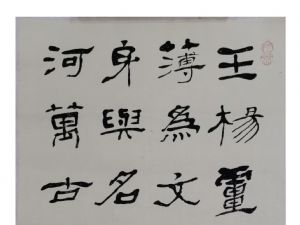 王楊盧
薄為文
身與名
河萬古